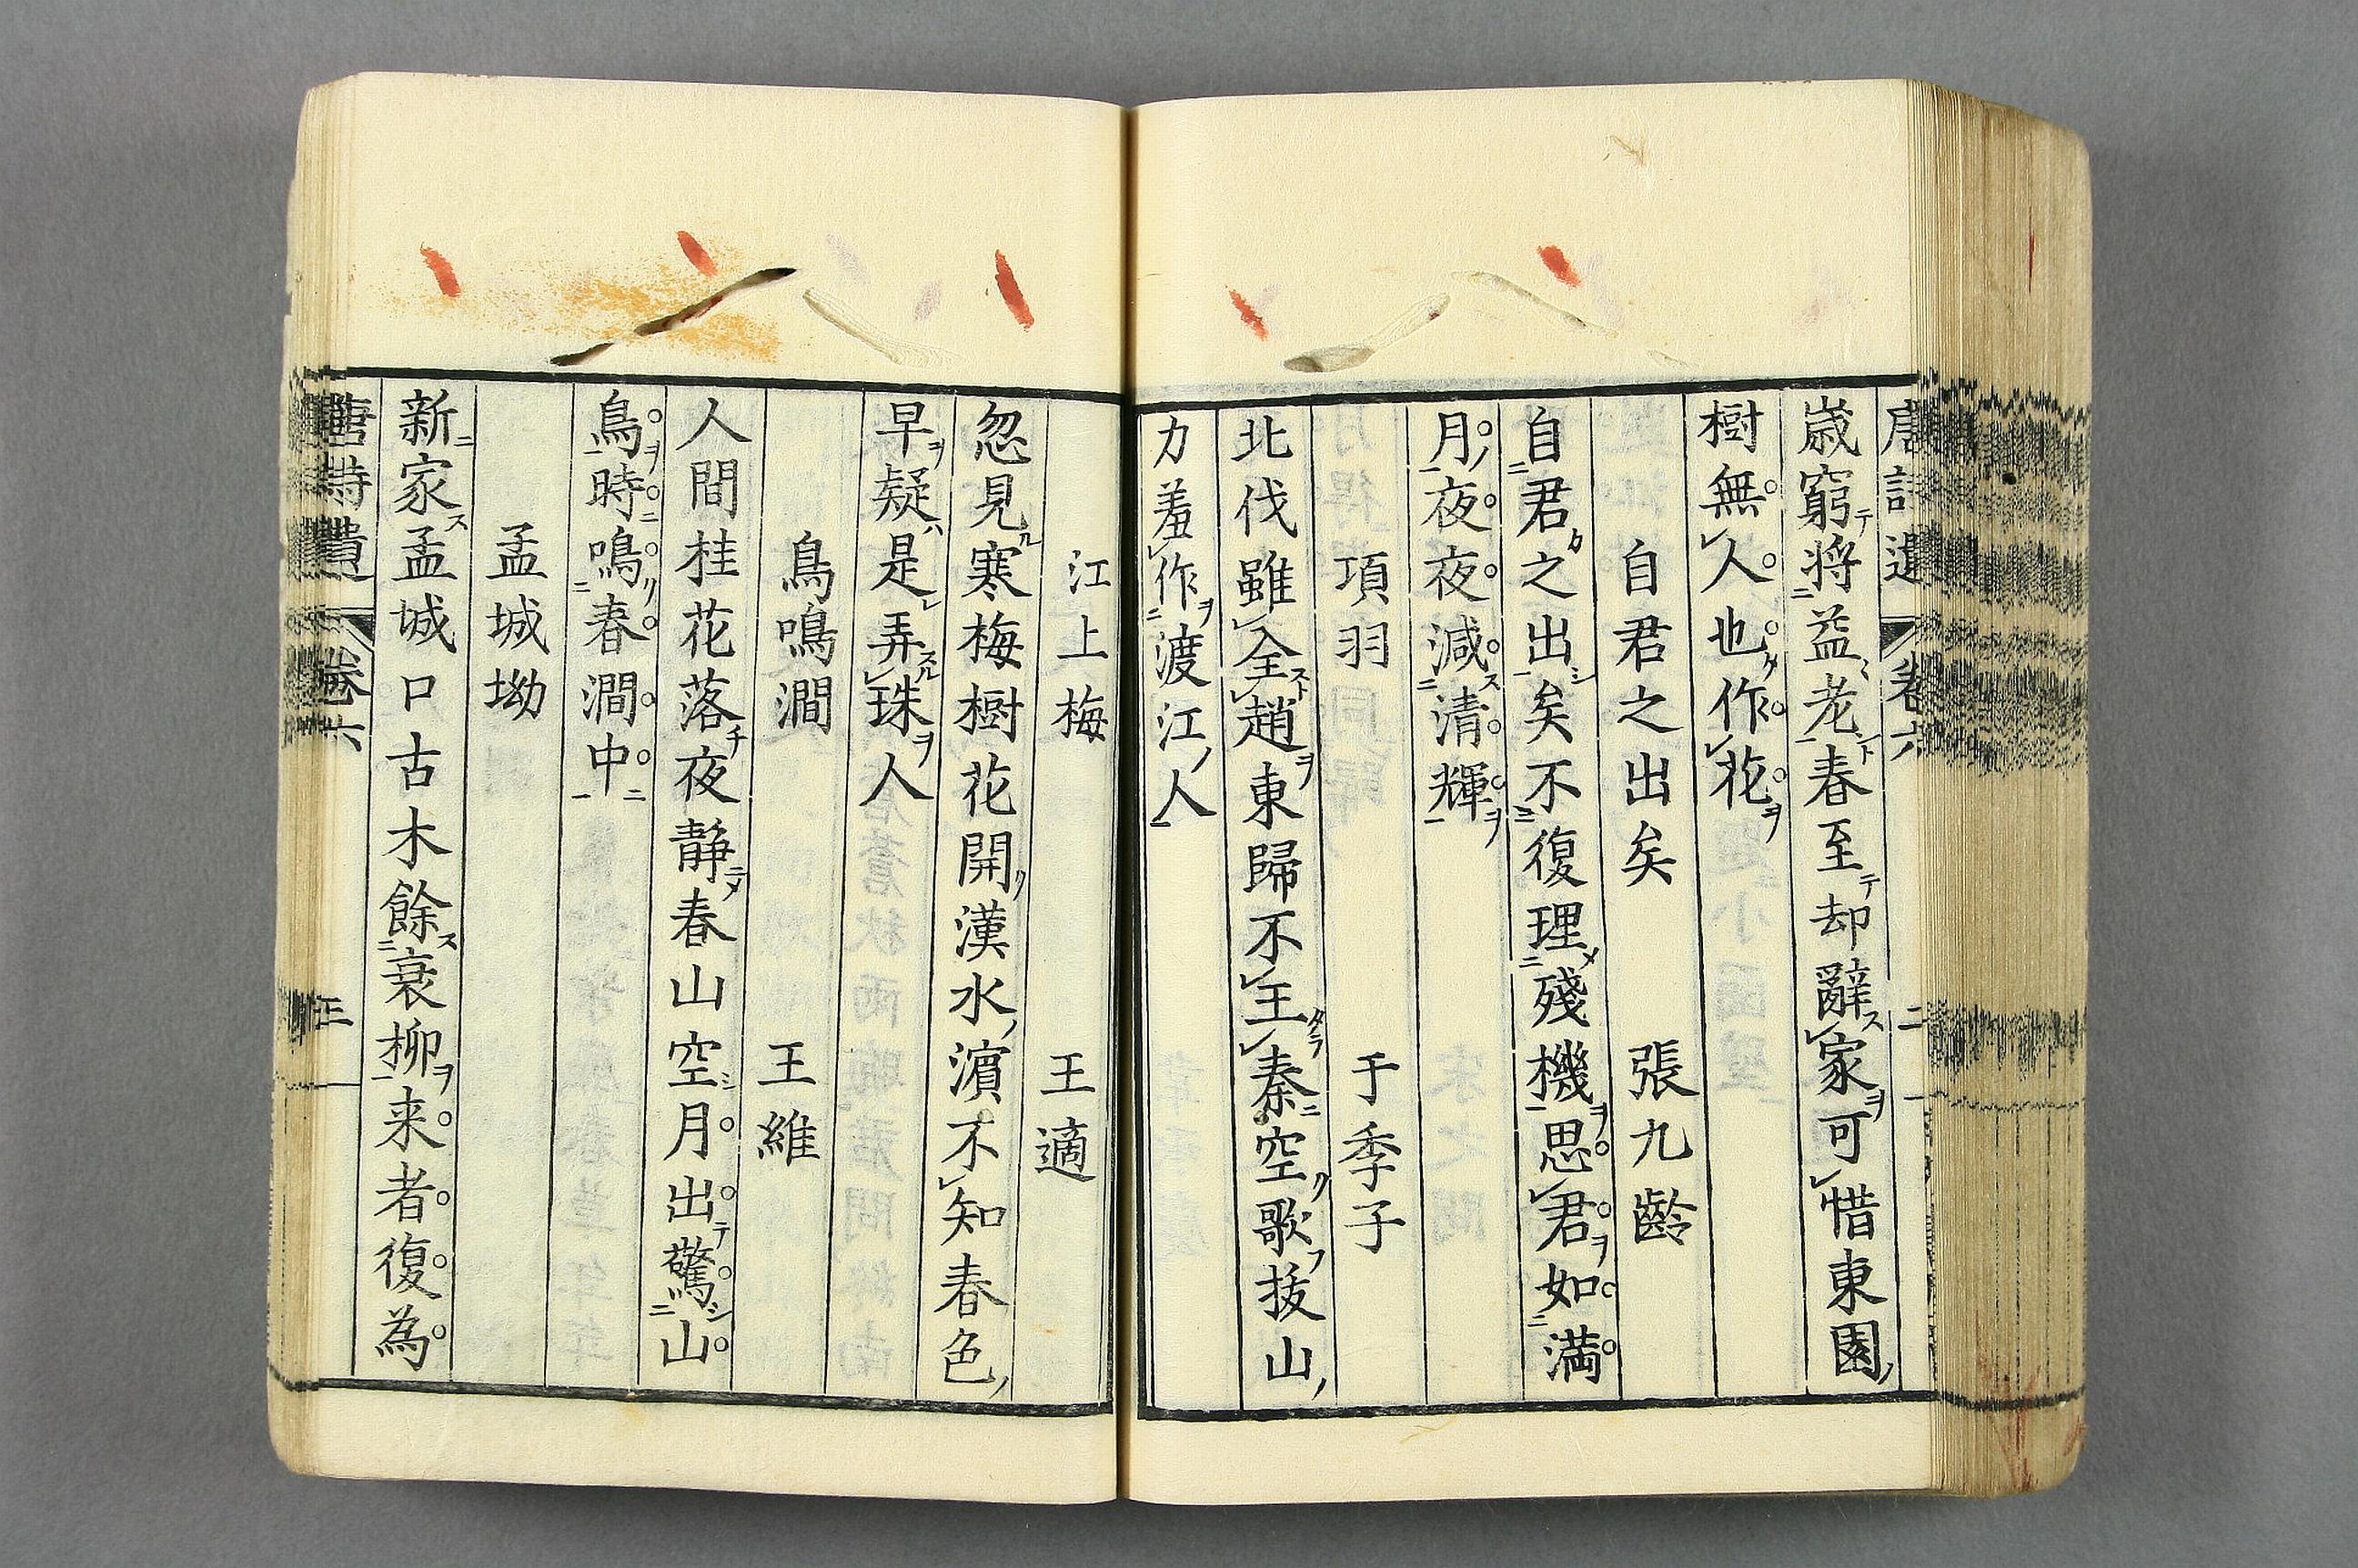 歳窮将益老春至却辭家可惜東園
樹無人也作花
自君之出矣 張九齡
自君之出矣不復理殘機思君如満
月夜夜減清輝
項羽 于季子
北伐雖全趙東歸不王秦空歌拔山
力羞作渡江人
江上梅 王適
忽見寒梅樹花開漢水濵不知春色
早疑是弄珠人
鳥鳴澗 王維
人間桂花落夜静春山空月出驚山
鳥時鳴春澗中
孟城坳
新家孟城口古木餘衰柳来者復為
卷六 三